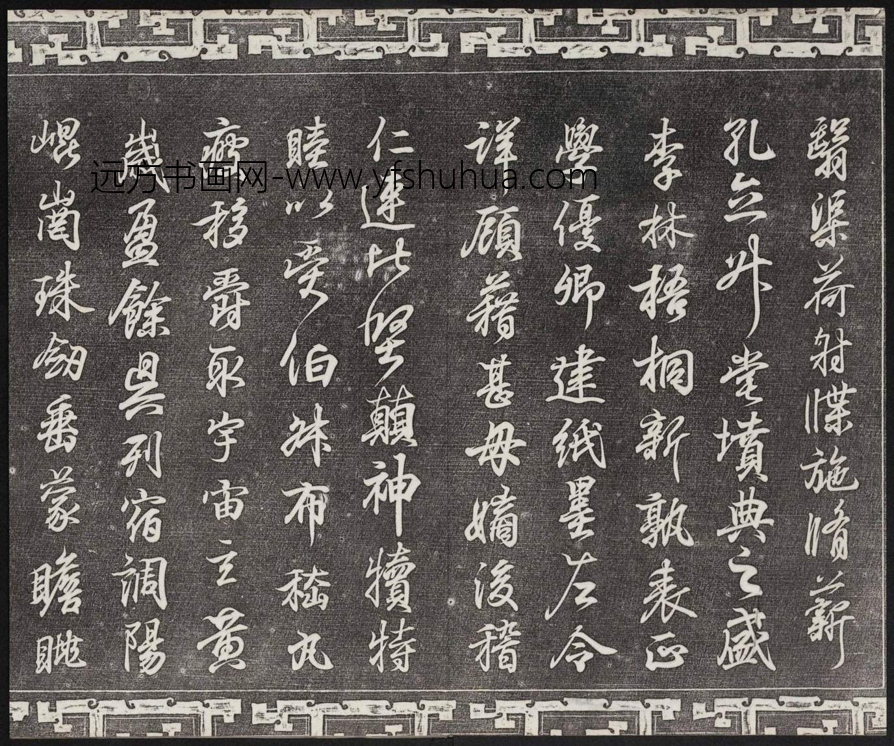 翳渠荷射牒施脩薪
孔立升堂墳典之盛
李林梧桐新孰表正
學優卿建紙墨左令
詳顧藉甚毋嫡後稽
仁連比堅顛神犢特
睦以受伯叔布嵇丸
移爵取宇宙玄黄
歲盈餘具列宿調陽
崐崗珠劒垂蒙瞻眺
远方书画网-www.yfshuhua.com